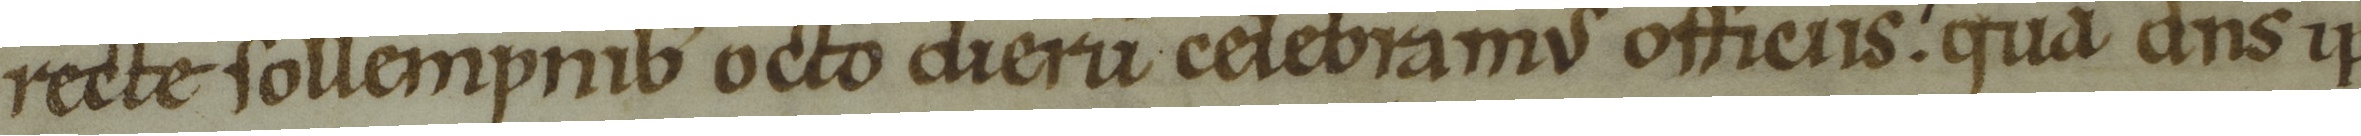 recte sollempnib' octo dierū celebramus officiis. quā dn̄s ip